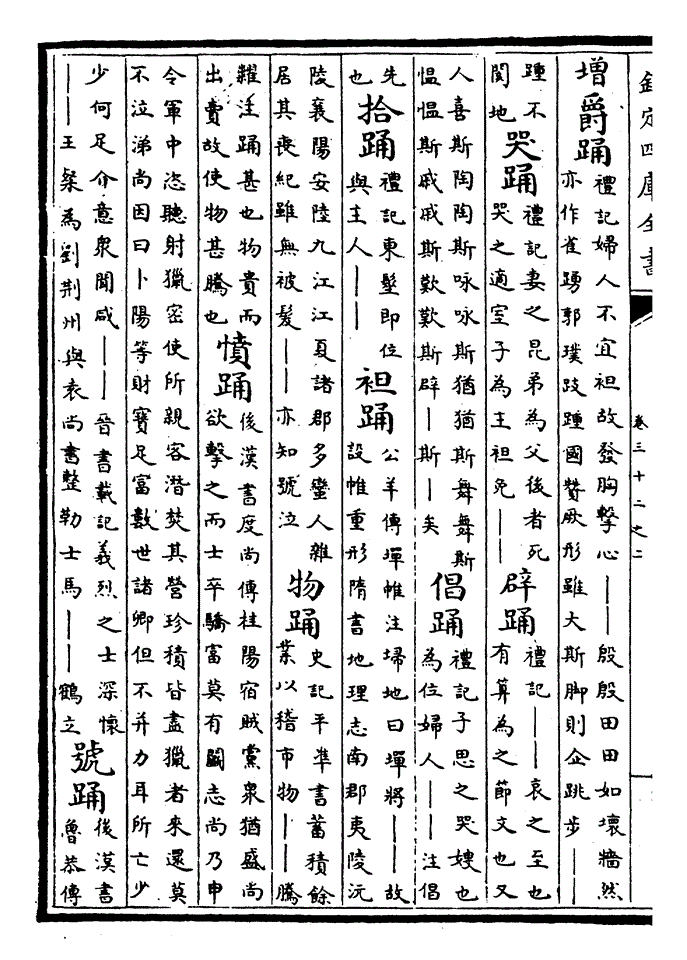 欽定四庫全書
卷三十二之二
增爵踊
禮記婦人不宜袒故發胸擊心――殷殷田田如壞牆然
亦作雀踊郭璞跂踵國贊厥形雖大斯脚則企跳步――
踵不
閡地
哭踊
禮記妻之昆弟為父後者死
哭之適室子為主袒免――
辟踊
禮記――哀之至也
有算為之節文也又
人喜斯陶陶斯咏咏斯猶猶斯舞舞斯
愠愠斯戚戚斯歎歎斯辟―斯―矣
倡踊
禮記子思之哭嫂也
為位婦人――注倡
先
也
拾踊
禮記東髽即位
與主人――
袒踊
公羊傳墠帷注埽地曰墠將――故
設帷重形隋書地理志南郡夷陵沅
陵襄陽安陸九江江夏諸郡多蠻人雜
居其喪紀雖無被髮――亦知號泣
物踊
史記平準書蓄積餘
業以稽市物――騰
糶注踊甚也物貴而
出賣故使物甚騰也
憤踊
後漢書度尚傳桂陽宿賊黨衆猶盛尚
欲擊之而士卒驕富莫有鬭志尚乃申
令軍中恣聽射獵密使所親客潛焚其營珍積皆盡獵者來還莫
不泣涕尚因曰卜陽等財寶足富數世諸卿但不并力耳所亡少
少何足介意衆聞咸――晉書載記義烈之士深懷
――王粲為劉荆州與袁尚書整勒士馬――鶴立
號踊
後漢書
魯恭傳